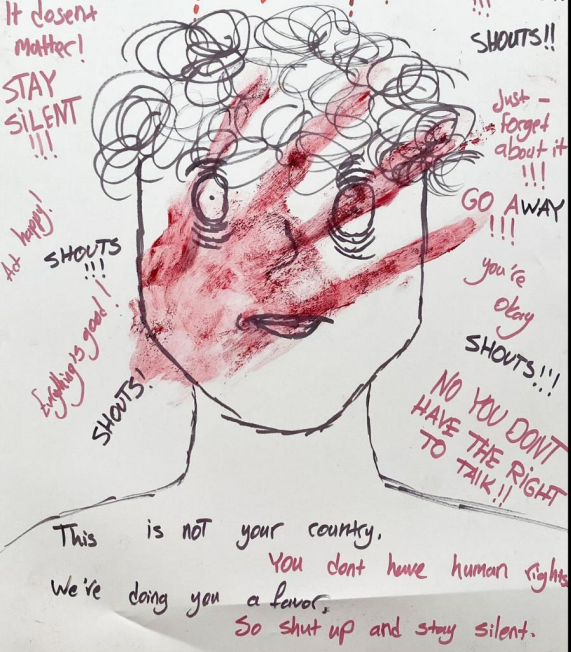 It dosent
matter!
STAY
SiLENT
!!!
Act happy!
SHOUTS
!!!
Everything is good!
SHOUTS!
!!!
SHOUTS!!
Just -
forget
about it
!!!
GO AWAY
!!!
you're
okay
SHOUTS!!!
NO YOU DONT
HAVE THE RIGHT
TO TALK!!
This is not your country.
You dont have human rights
We're doing you a favor,
So shut up and stay silent.